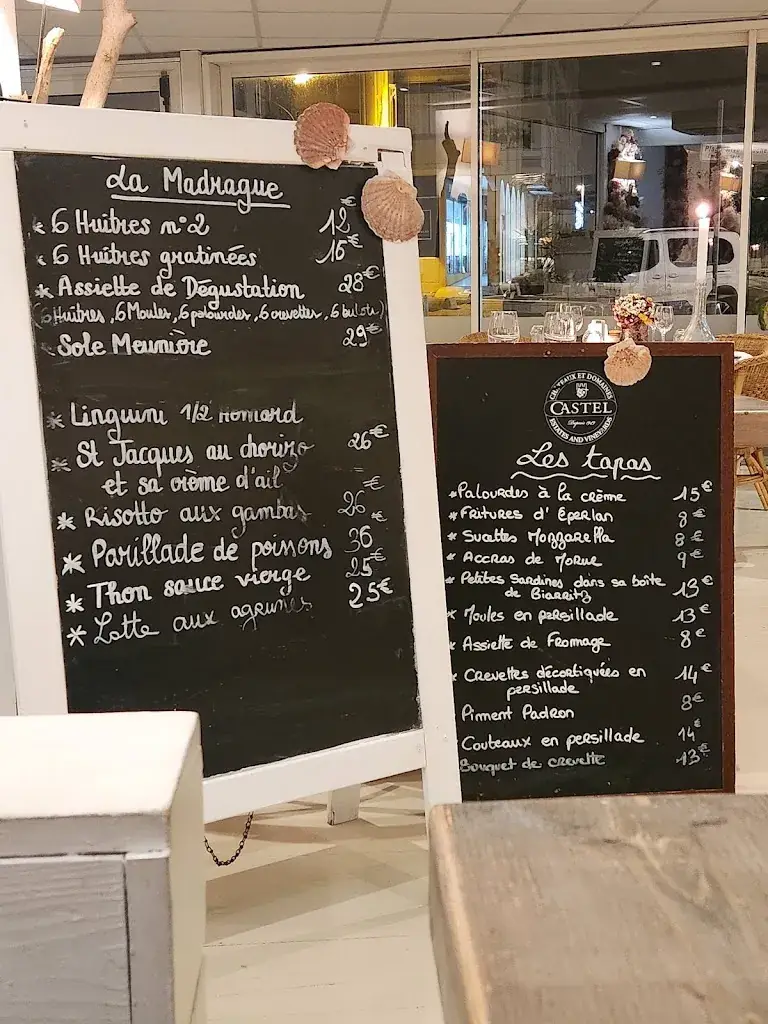 La Madrague
* 6 Huitres n°2 12€
* 6 Huitres gratinées 15€
* Assiette de Dégustation 28€
(6 Huitres, 6 Moules, 6 palourdes, 6 crevettes, 6 bulots)
Sole Meunière 29€
* Linguini 1/2 Homard
* St Jacques au chorizo 26€
et sa crème d'ail
* Risotto aux gambas 26€
* Parillade de poissons 36
* Thon sauce vierge 25€
* Lotte aux agrumes 25€
CHATEAUX ET DOMAINES
CASTEL
Depuis 1949
ESTATES AND VINEYARDS
Les tapas
* Palourdes à la crème 15€
* Fritures d'Eperlan 8€
* Sucettes Mozzarella 8€
* Accras de Morue 9€
* Petites Sardines dans sa boîte 13€
de Biarritz
* Moules en persillade 13€
* Assiette de Fromage 8€
* Crevettes décortiquées en 14€
persillade
Piment Padron 8€
Couteaux en persillade 14€
Bouquet de crevette 13€